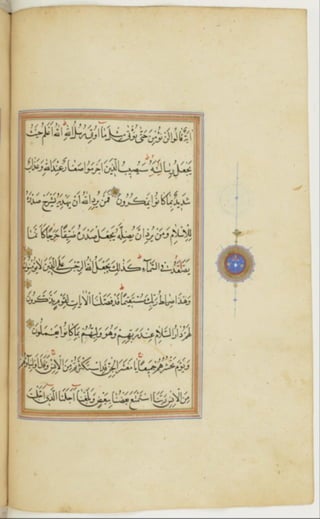 اٰيَةٌ قَالُوا لَنْ نُؤْمِنَ حَتّٰى نُؤْتٰى مِثْلَ مَا اُوتِيَ رُسُلُ اللهِ اَللهُ اَعْلَمُ حَيْثُ
يَجْعَلُ رِسَالَتَهُ سَيُصِيبُ الَّذِينَ اَجْرَمُوا صَغَارٌ عِنْدَ اللهِ وَعَذَابٌ
شَدِيدٌ بِمَا كَانُوا يَمْكُرُونَ فَمَنْ يُرِدِ اللهُ اَنْ يَهْدِيَهُ يَشْرَحْ صَدْرَهُ
لِلْاِسْلَامِ وَمَنْ يُرِدْ اَنْ يُضِلَّهُ يَجْعَلْ صَدْرَهُ ضَيِّقًا حَرَجًا كَاَنَّمَا
يَصَّعَّدُ فِي السَّمَاءِ كَذٰلِكَ يَجْعَلُ اللهُ الرِّجْسَ عَلَى الَّذِينَ لَا يُؤْمِنُونَ
وَهٰذَا صِرَاطُ رَبِّكَ مُسْتَقِيمًا قَدْ فَصَّلْنَا الْاٰيَاتِ لِقَوْمٍ يَذَّكَّرُونَ
لَهُمْ دَارُ السَّلَامِ عِنْدَ رَبِّهِمْ وَهُوَ وَلِيُّهُمْ بِمَا كَانُوا يَعْمَلُونَ
وَيَوْمَ نَحْشُرُهُمْ جَمِيعًا يَا مَعْشَرَ الْجِنِّ قَدِ اسْتَكْثَرْتُمْ مِنَ الْاِنْسِ وَقَالَ اَوْلِيَاؤُهُمْ
مِنَ الْاِنْسِ رَبَّنَا اسْتَمْتَعَ بَعْضُنَا بِبَعْضٍ وَبَلَغْنَا اَجَلَنَا الَّذِي اَجَّلْتَ